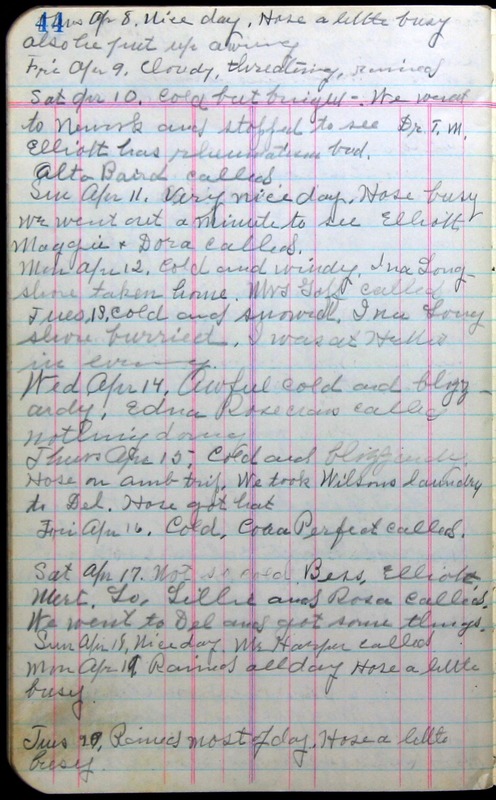 44
Thurs Apr 8. Nice day, Hose a little busy
also he put up awning
Fri Apr 9. Cloudy, thredtning, rained
Sat Apr 10. Cold but bright. We went
to Newark and stopped to see Dr. T. M.
Elliott has rheumatism bad.
Alta Baird called
Sun Apr 11. Very nice day. Hose busy
we went out a minute to see Elliott
Maggie & Dora called.
Mon Apr 12. Cold and windy. Ina Long-
shore taken home. Mrs Goff called
Tues, 13, Cold and snowed. Ina Long
shore burried. I was at
in evening.
Wed Apr 14. Awful cold and blizz-
ardy, Edna Rosecrans called
nothing doing
Thurs Apr 15. Cold and
Hose on amb trip. We took Wilsons laundry
to Del. Hose got hat
Fri Apr 16. Cold, Cora Perfect called.
Sat Apr 17. Not so cold, Bess, Elliott,
Mert, Lo, Lillie and Rosa called.
We went to Del and got some things.
Sun Apr 18, Nice day Mr Harper called
Mon Apr 19 Rained all day Hose a little
busy.
Tues 20, Rained most of day. Hose a little
busy.